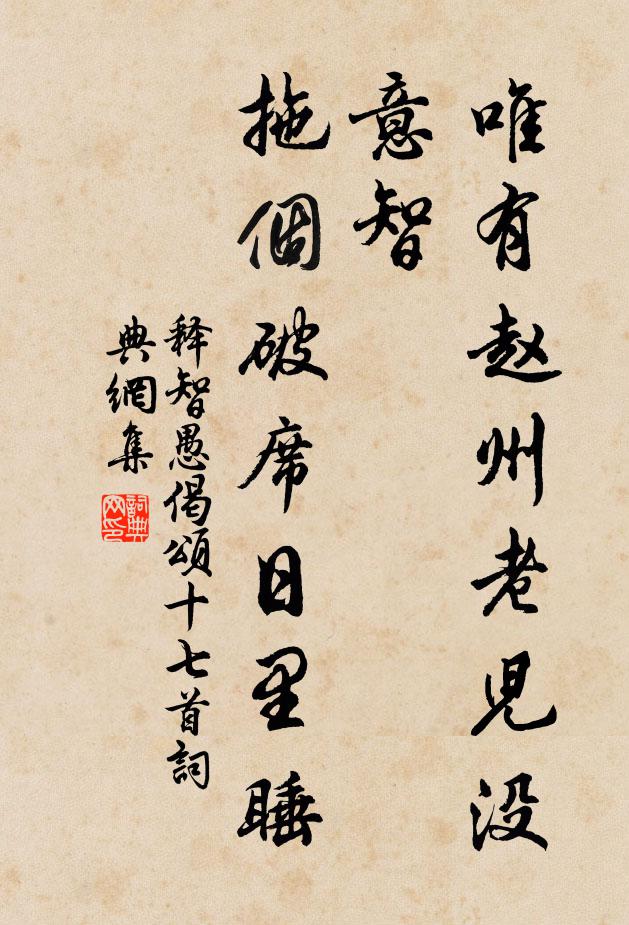 唯有赵州老児没
意智
拖個破席日里睡
释智愚偈頌十七首詞
典網集
詞典
网印